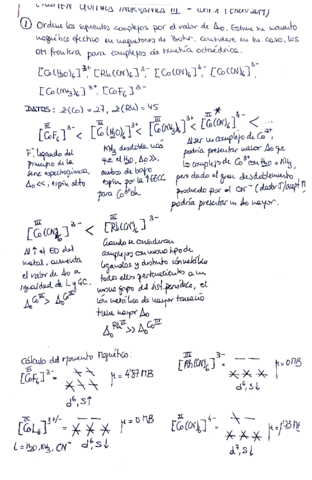 EXAMEN QUÍMICA INORGÁNICA III -
① Ordene los siguientes complejos por el valor de Δo. Estime su momento
magnético efectivo en magnetones de Bohr, considere en su caso, los
OM frontera para complejos de simetría octaédrica.
[Co(H₂O)₆]³⁺, [Rh(CN)₆]³⁻, [Co(CN)₆]⁴⁻, [Co(CN)₆]³⁻,
[Co(NH₃)₆]³⁺, [CoF₆]³⁻
DATOS: Z(Co) = 27, Z(Rh) = 45
[CoF₆]³⁻ < [Co(H₂O)₆]³⁺ < [Co(NH₃)₆]³⁺ < [Co(CN)₆]⁴⁻ < ...
F⁻ ligando del
principio de la
serie espectroquímica
Δo <<, espín alto
NH₃ desdobla más
que el H₂O, Δo >>.
ambos de bajo
espín por la
para Co³⁺
Al ser un complejo de Co²⁺,
podría presentar menor Δo que
los complejos de Co³⁺ con H₂O o NH₃,
pero dado el gran desdoblamiento
producido por el CN⁻
podría presentar un Δo mayor.
[Co(CN)₆]³⁻ < [Rh(CN)₆]³⁻
Al ↑ el EO del
metal, aumenta
el valor de Δo a
igualdad de L y GC.
Δo Coᴵᴵᴵ > Δo Coᴵᴵ
Cuando se consideran
complejos con mismo tipo de
ligandos y distinto ión metálico
todo ellos pertenecientes a un
mismo grupo del sist. periódico, el
ión metálico de mayor tamaño
tiene mayor Δo
Δo Rhᴵᴵᴵ > Δo Coᴵᴵᴵ
Cálculo del momento magnético:
[CoF₆]³⁻ μ = 4'87 MB
d⁶, S↑
[Rh(CN)₆]³⁻ μ = 0 MB
d⁶, S↓
[CoL₆]³⁺/⁻ μ = 0 MB
L = H₂O, NH₃, CN⁻ d⁶, S↓
[Co(CN)₆]⁴⁻ μ = 1'73 MB
d⁷, S↓